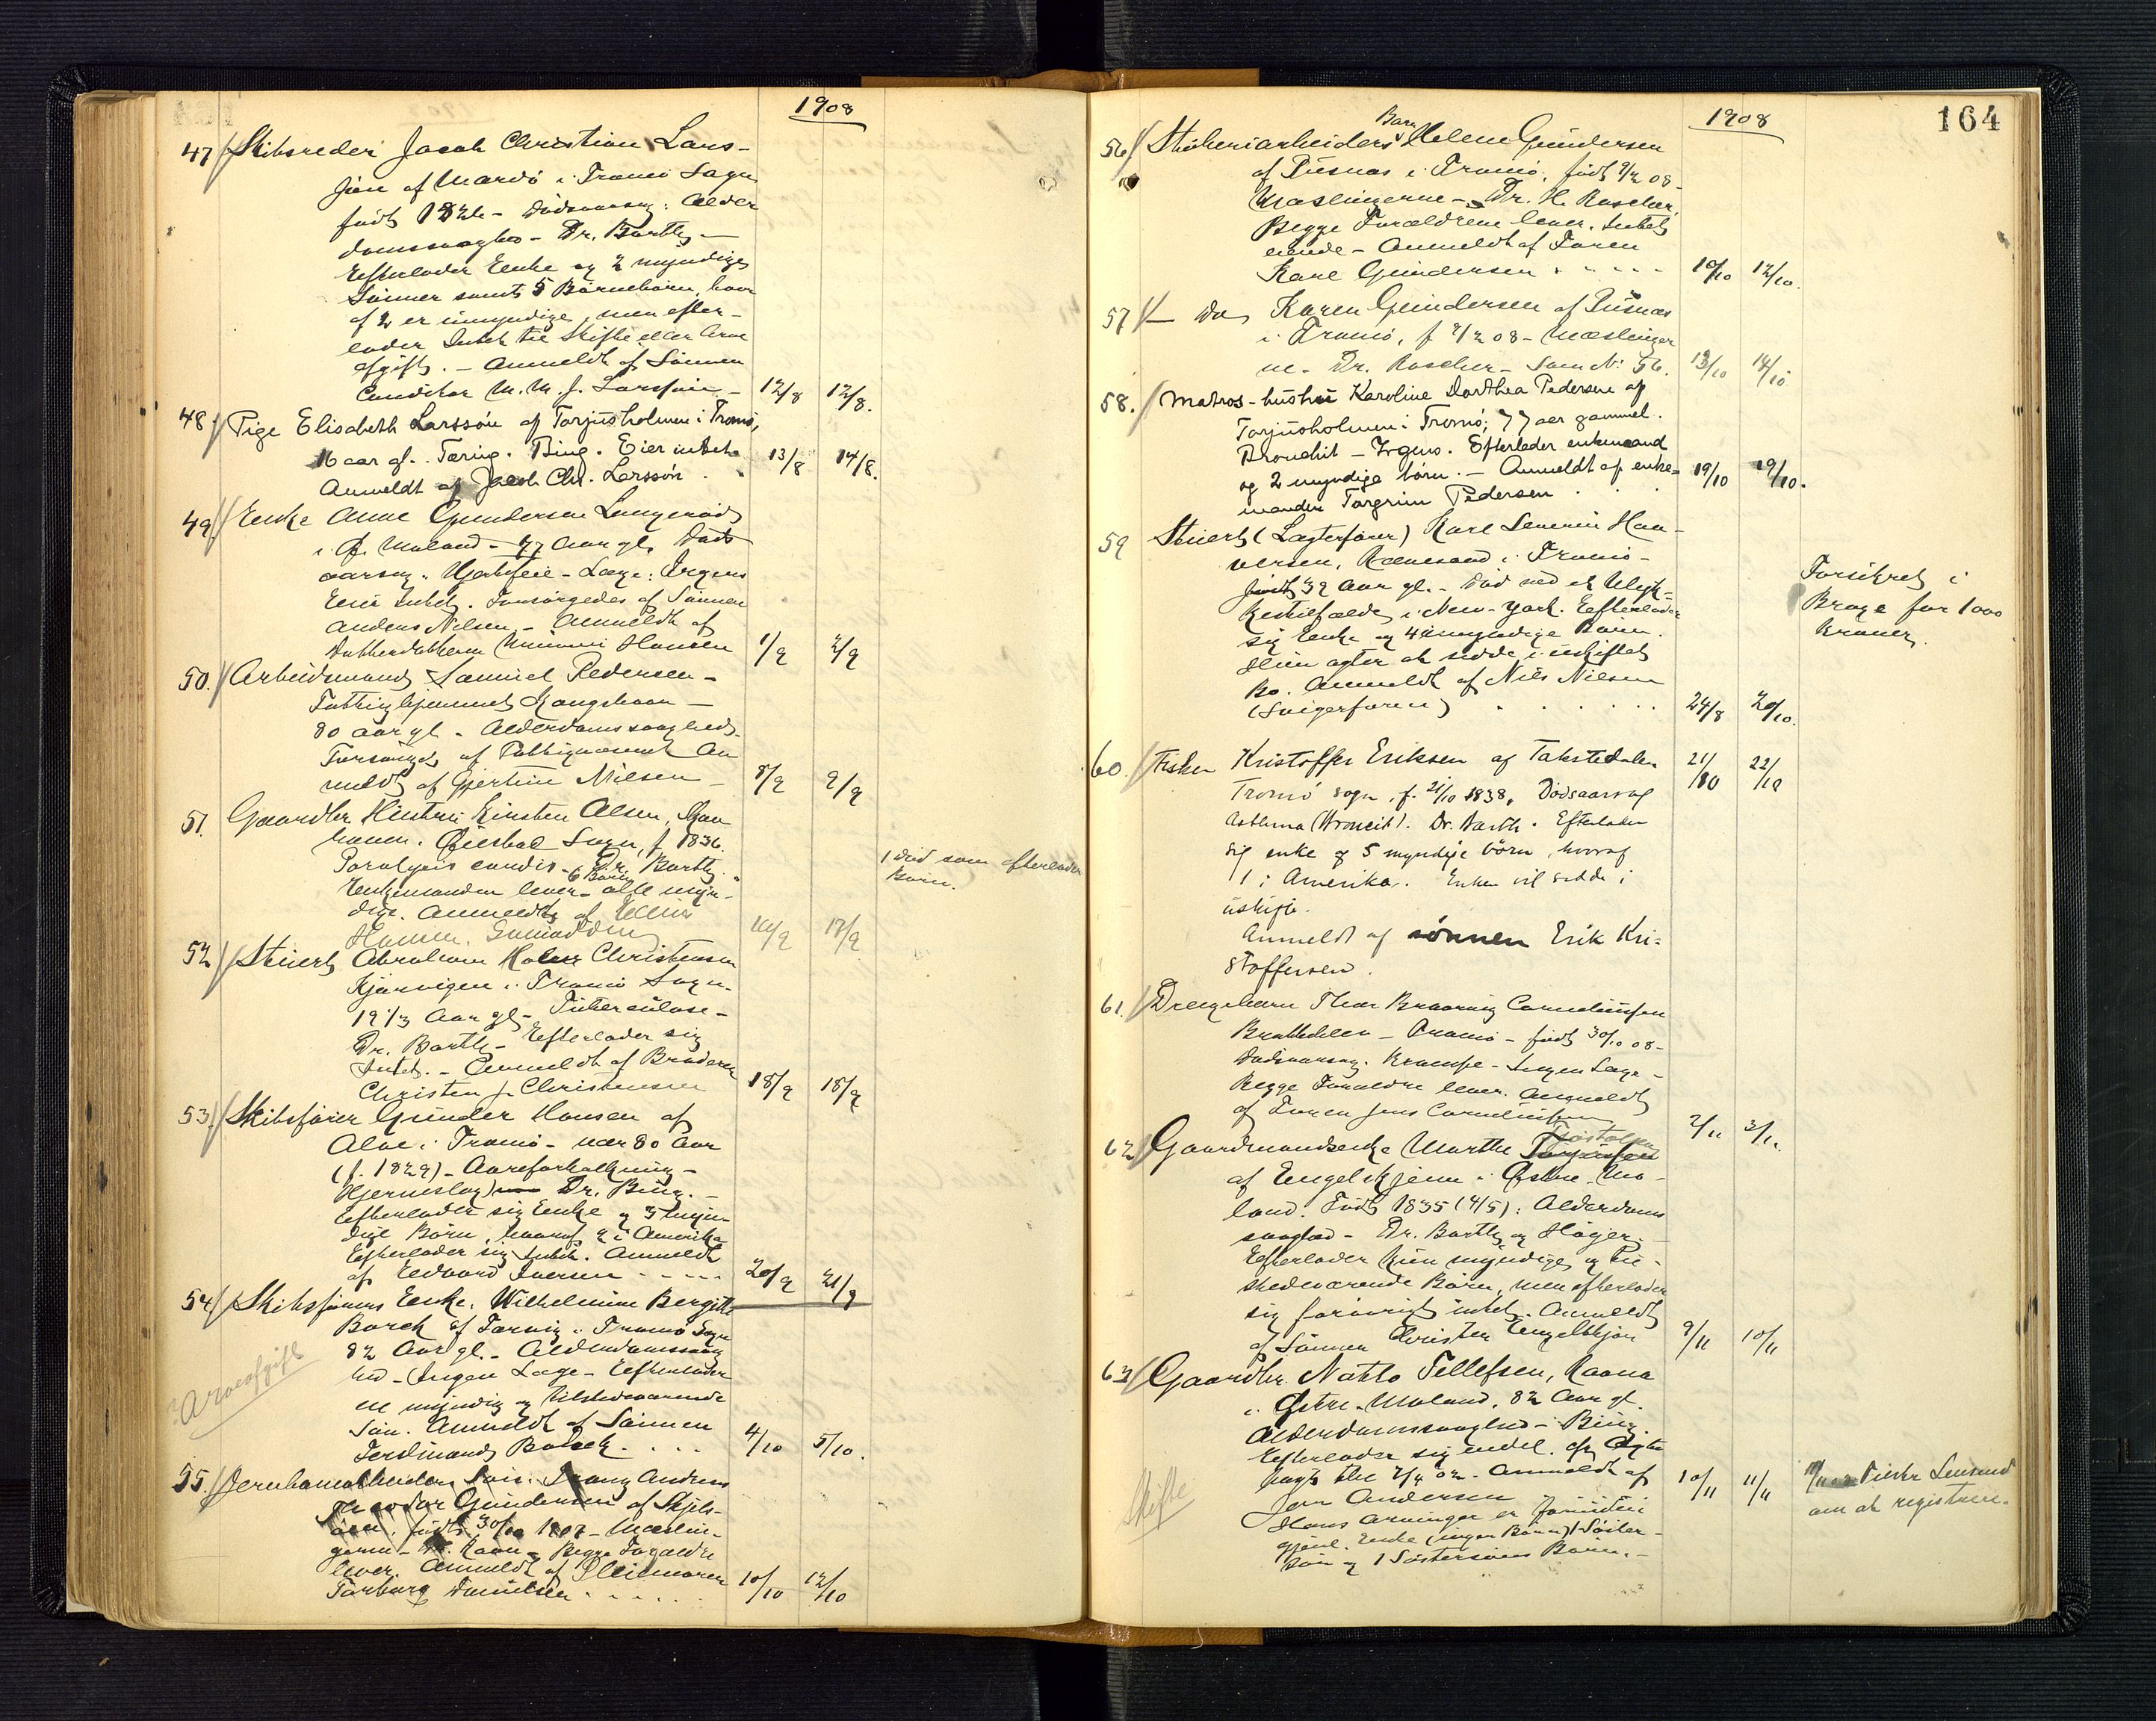 1908
47/ Skibsreder Jacob Christian Lars-
søn af Mardø i Tromø Sogn
født 182 - Dødsaarsag: Alder
domssvaghed - Dr. Barth -
Efterlader Enke og 2 myndige
Sønner samt 5 Børnebørn, hvor
af 2 er umyndige, men efter-
lader Intet til Skifte eller Arve
afgift. - Anmeldt af Sønnen
Conditor M. M. J. Larssøn - 12/8 12/8.
48/ Pige Elisabeth Larssøn af Torjusholmen i Tromø,
16 aar gl. Tæring. Bing. Eier intet.
Anmeldt af Jacob Chr. Larssøn. 13/8 14/8.
49/ Enke Anne Gundersen Longerød
i Ø. Moland - 77 Aar gl. Døds
aarsag: Hjertefeil - Læge: Irgens
Eier Intet. Forsørgedes af Sønnen
Anders Nilsen. - Anmeldt af
Minni Hansen 1/9 2/9
50./ Arbeidsmand Samuel Pedersen -
Fattighjemmet Kongshavn -
80 aar gl. - Alderdomssvaghed.
Forsørget af Fattigvæsenet An
meldt af Gjertine Nilsen - 8/9 9/9
51. Gaardbr. Hustru Kirsten Olsen,
Øiestad Sogn, f. 1836.
Paralysis cordis - Dr. Barth.
Enkemanden lever - 6 Børn alle myn-
dige. Anmeldt af
Hansen. 16/9 17/9
1 død som efterlader
Børn.
52/ Stuert Abraham Holm Christensen
Kjørvigen i Tromø Sogn.
19 1/3 Aar gl. - Tuberculose -
Dr. Barth - Efterlader sig
Intet. - Anmeldt af Broderen
Christen J. Christensen 18/9 18/9
53/ Skibsfører Gunder Hansen af
Alve i Tromø - nær 80 Aar
(f. 1829) - Aareforkalkning -
Hjerneslag) Dr. Bing. -
Efterlader sig Enke og 3 myn-
dige Børn, hvoraf 2 i Amerika
Efterlader sig Intet. Anmeldt
af Edvard Iversen - - - - 20/9 21/9
54/ Skibsførers Enke, Wilhelmine Bergitte
Borch af Færvig i Tromø Sogn
82 Aar gl. - Alderdomssvag
hed - (Ingen Læge - Efterlader
en myndig og tilstedeværende
Søn. Anmeldt af Sønnen
Ferdinand Borch. . . . 4/10 5/10.
? Arveafgift
55./ Jernbanearbeiders Søn: Franz Andreas
Theodor Gundersen af Skjels-
øen, født 30/ 1907 - Mæslin-
gerne - Begge Forældre
lever. Anmeldt af Pleiemoren
Torborg Danielsen . . . . . 10/10 12/10
164
1908
56/ Skiberiarbeiders Barn Helene Gundersen
af Pusnes i Tromø, født 9/2 08 -
Mæslingerne - Dr. H. Roscher.
Begge Forældrene lever. Intet
eiende - Anmeldt af Faren
Karl Gundersen . - - - - 10/10 12/10.
57/ - Do Karen Gundersen af Pusnes
i Tromø, f. 9/2 08 - Mæslinger
ne - Dr. Roscher - Som No 56. 13/10 14/10
58./ Matros-hustru Karoline Dorthea Pedersen af
Torjusholmen i Tromø; 77 aar gammel.
Bronchit - Irgens. Efterlader enkemand
og 2 myndige børn. - Anmeldt af enke-
manden Torgrim Pedersen . . . 19/10 19/10.
59 Stuert (Lagterfører) Karl Severin Hal-
vorsen, Rævesand i Tromø -
født 39 Aar gl. - Død ved et Ulyk-
kestilfælde i New-York. Efterlader
sig Enke og 4 umyndige Børn.
Hun agter at sidde i uskiftet
Bo. Anmeldt af Nils Nilsen
(Svigerfaren) . . . . . . 24/8 20/10.
Forsikret i
Brage for 1000
Kroner.
60./ Fisker Kristoffer Eriksen af Takstedalen 21/10 22/10
Tromø sogn, f. 21/10 1838, Dødsaarsag
Asthma (Broncit). Dr. Barth. Efterlader
sig enke og 5 myndige børn, hvoraf
1 i Amerika. Enken vil sidde i
uskifte.
Anmeldt af sønnen Erik Kri-
stoffersen.
61./ Drengebarn Thor Braaring Corneliussen
Brattekleiv - Tromø - født 30/10 08 -
Dødsaarsag. Krampe - Ingen Læge -
Begge Forældre lever. Anmeldt
af Faren Jens Corneliussen 2/11 3/11.
62/ Gaardmandsenke Marthe
af Engelskjøn i Østre Mo-
land. Født 1835 (4/5): Alderdoms
svaghed - Dr. Barth og Høyer. -
Efterlader kun myndige og til-
stedeværende Børn, men efterlader
sig forøvrigt intet. Anmeldt
af Sønnen Christen Engelskjøn 9/11 10/11
63/ Gaardbr. Nahto Tellefsen, Raana
i Østre-Moland, 82 Aar gl.
Alderdomssvaghed - Bing
Efterlader sig endel.
Anmeldt af
Jon Andersen 10/11 11/11
Hans arvinger er foruden
gjenl. Enke (ingen Børn) 1 Søster-
søn og 1 Søstersøns Børn. -
Skifte
om at registrere.